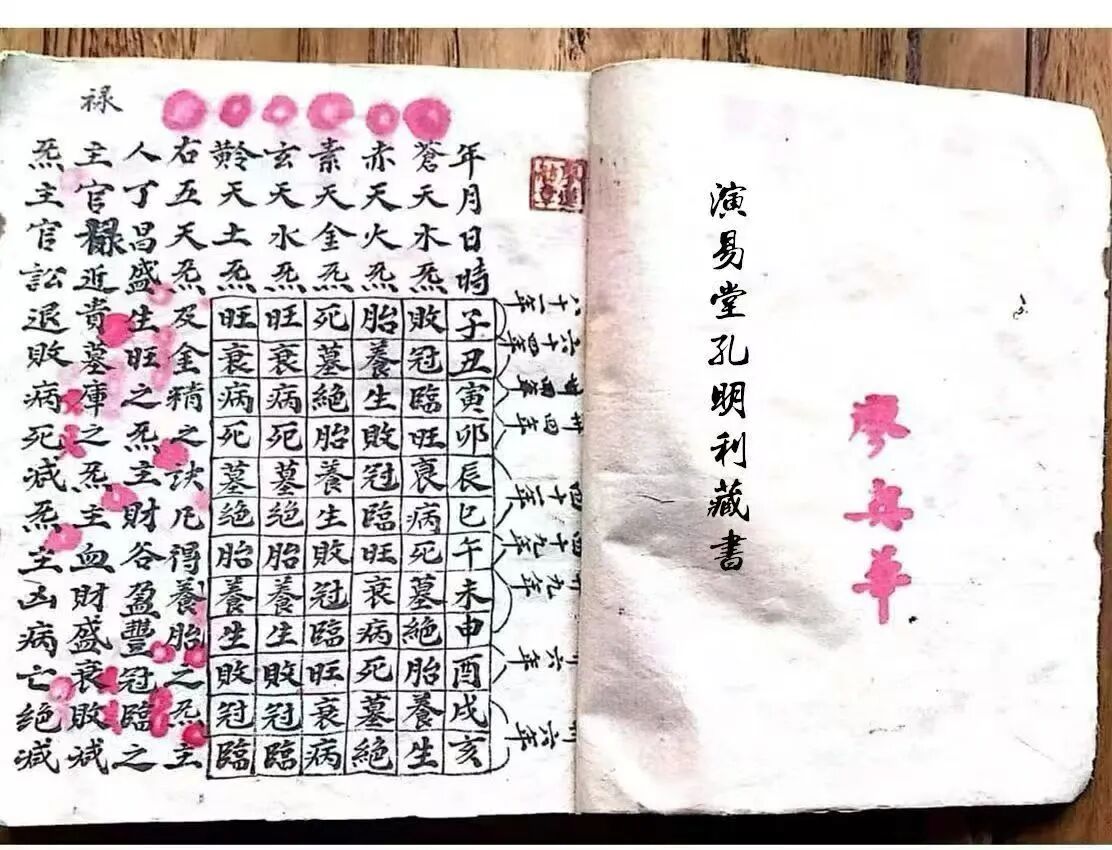 廖華
演易堂孔明利藏書
八十一年
六十四年
卅四年
四十一年
四十九年
卅九年
卅六年
年月日時子丑寅卯辰巳午未申酉戌亥
蒼天水炁敗冠臨旺衰病死墓絕胎養生
赤天火炁胎養生敗冠臨旺衰病死墓絕
素天金炁死墓絕胎養生敗冠臨旺衰病
玄天水炁旺衰病死墓绝胎養生敗冠臨
黅天土炁旺衰病死墓绝胎養生敗冠臨
右五天炁及金精之訣凡得養胎之炁主
人丁昌盛生旺之炁主財谷盈豐冠臨之
禄
主官祿近貴墓庫之炁主血財盛衰敗减
炁主官訟退敗病死减炁主凶病亡绝减